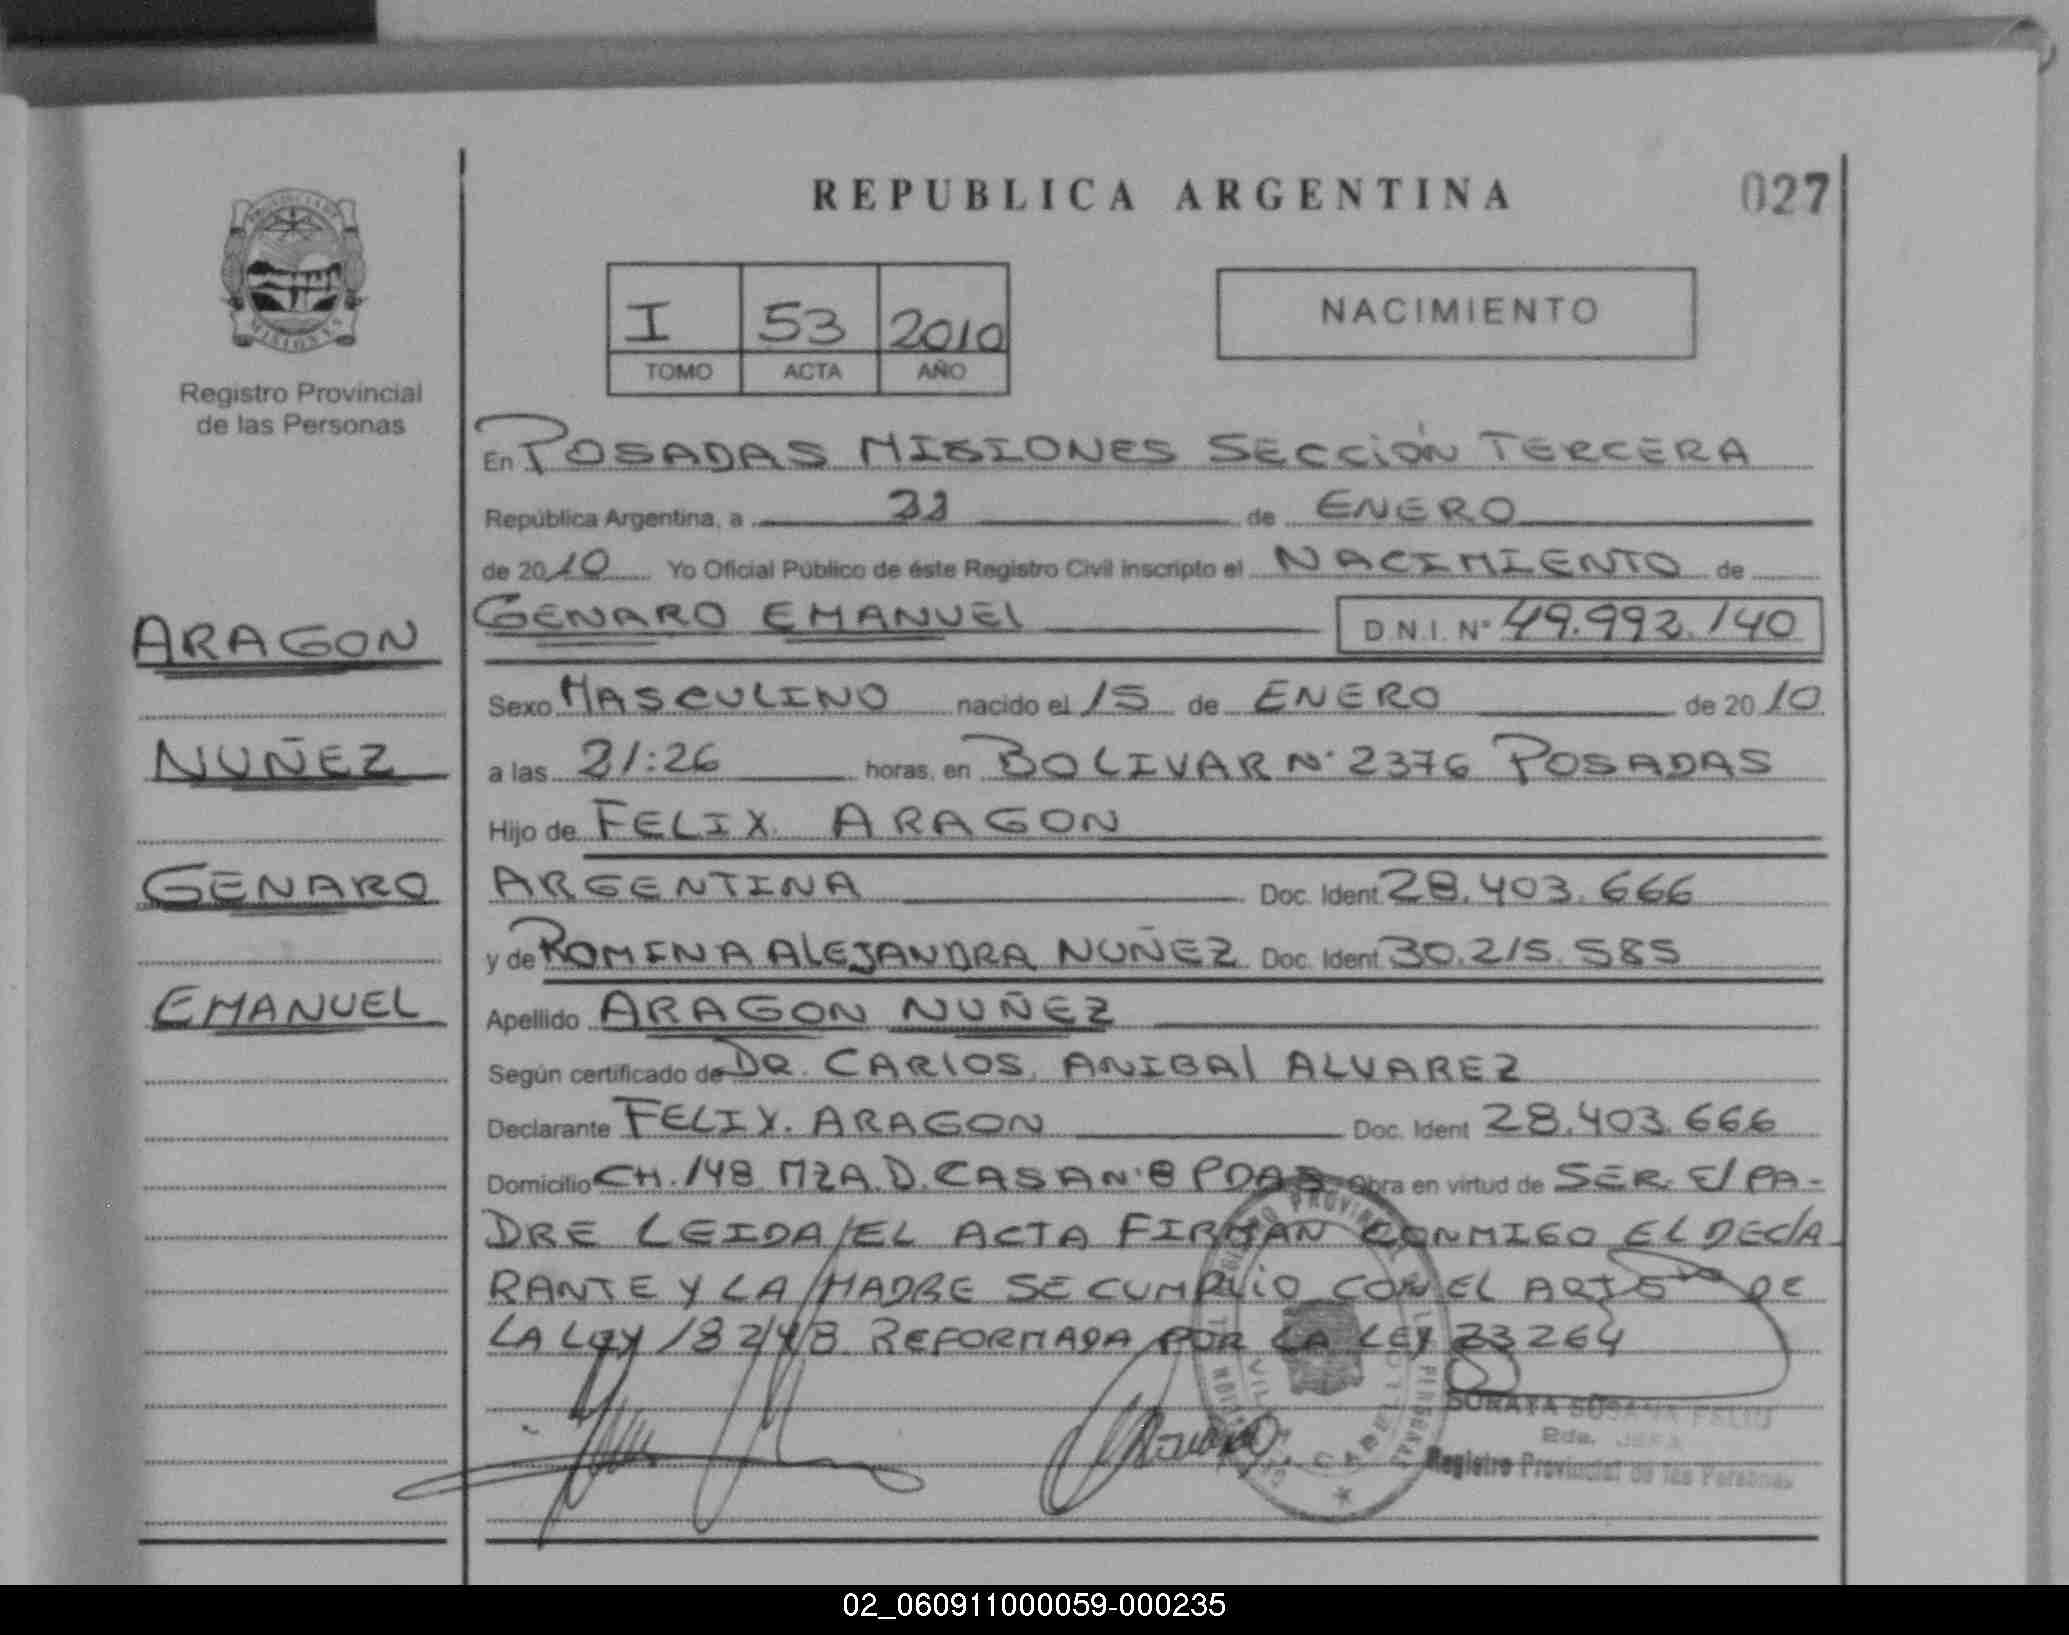 REPUBLICA ARGENTINA
027
Registro Provincial
de las Personas
I 53 2010
TOMO ACTA AÑO
NACIMIENTO
En POSADAS MISIONES SECCIÓN TERCERA
República Argentina, a de ENERO
de 2010 Yo Oficial Público de éste Registro Civil inscripto el NACIMIENTO de
GENARO EMANUEL D.N.I. Nº 49.992.140
Sexo MASCULINO nacido el 15 de ENERO de 2010
a las 21:26 horas, en BOLIVAR Nº 2376 POSADAS
Hijo de FELIX ARAGON
ARGENTINA Doc. Ident. 28.403.666
y de ROMINA ALEJANDRA NUÑEZ Doc. Ident. 30.215.585
Apellido ARAGON NUÑEZ
Según certificado de DR. CARLOS ANIBAL ALVAREZ
Declarante FELIX ARAGON Doc. Ident 28.403.666
Domicilio CH. 148 MZA. D. CASA Nº 8 PDAS Obra en virtud de SER El PA-
DRE LEIDA EL ACTA FIRMAN CONMIGO EL DECLA
RANTE Y LA MADRE SE CUMPLIO CON EL ART 5 DE
LA LEY 18248 REFORMADA POR LA LEY 23264
ARAGON
NUÑEZ
GENARO
EMANUEL
SORAYA SUSANA FELIU
JEFA
Registro Provincial de las Personas
02_060911000059-000235